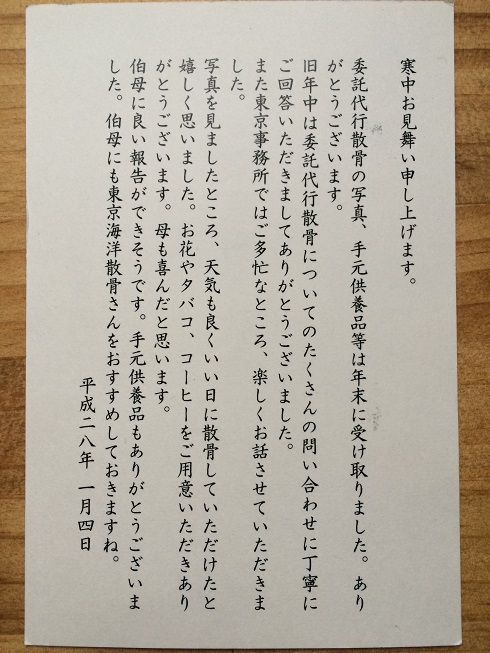 寒中お見舞い申し上げます。
委託代行散骨の写真、手元供養品等は年末に受け取りました。あり
がとうございます。
旧年中は委託代行散骨についてのたくさんの問い合わせに丁寧に
ご回答いただきましてありがとうございました。
また東京事務所ではご多忙なところ、楽しくお話させていただきま
した。
写真を見ましたところ、天気も良くいい日に散骨していただけたと
嬉しく思いました。お花やタバコ、コーヒーをご用意いただきあり
がとうございます。母も喜んだと思います。
伯母に良い報告ができそうです。手元供養品もありがとうございま
した。伯母にも東京海洋散骨さんをおすすめしておきますね。
平成二八年 一月四日